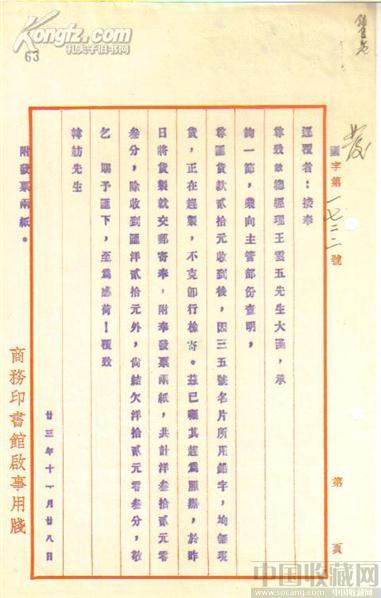 Kongfz.com
孔夫子旧书网
63
發
國字第一七二二號
逕覆者：接奉
尊致敝總經理王雲五先生大函，承
詢一節，經向主管部份查明，
尊匯貨款貳拾元收到後，因三五號名片所用鉛字，均無現
貨，正在趕製，不克即行檢寄。茲已囑其趕為照辦，於昨
日將貨製就交郵寄奉，附奉發票兩紙，共計洋叁拾貳元零
叁分，除收到匯洋貳拾元外，尚結欠洋拾貳元零叁分，敬
乞 賜予匯下，至為感荷！覆致
先生
附發票兩紙。
廿三年十一月廿八日
商務印書館啟事用牋
第 頁
中国收藏网
www.socang.com 中国收藏网